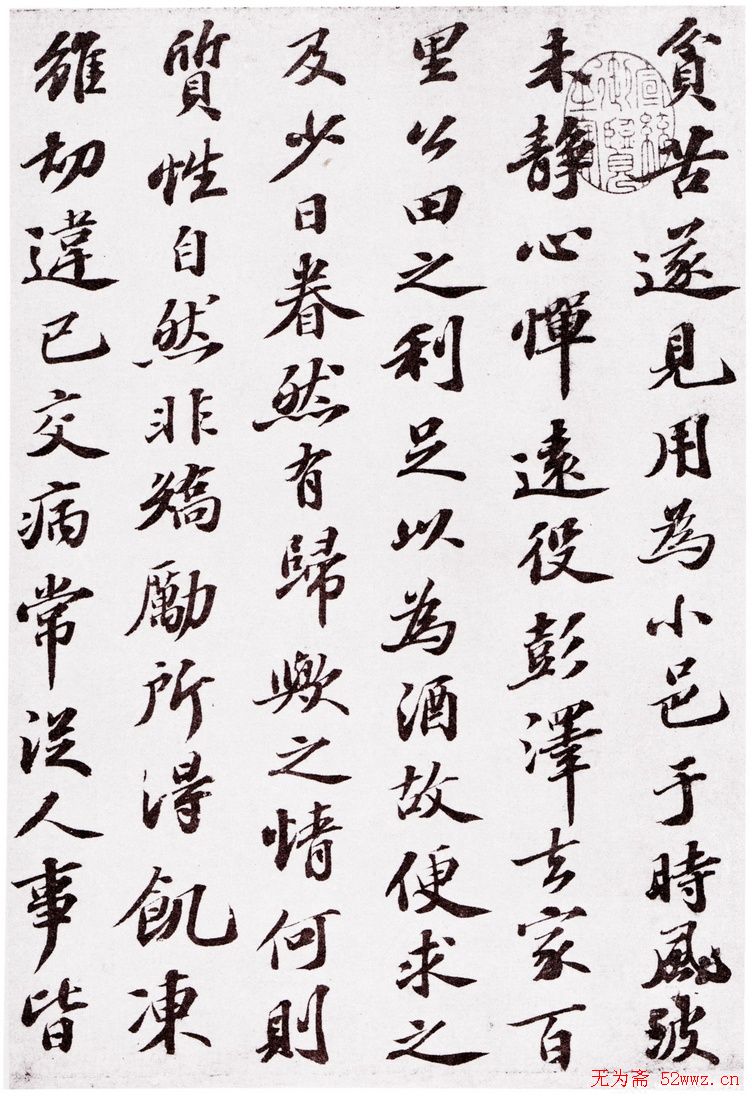 貧苦遂見用為小邑于時風波
未靜心憚遠役彭澤去家百
里公田之利足以為酒故便求之
及少日眷然有歸歟之情何則
質性自然非矯勵所得飢凍
雖切違已交病常從人事皆
宣統御覽之寶
无为斋 52wwz.cn